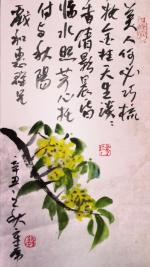 美人何必巧梳
妆金桂天生淡淡
香倩影晨窗
临水照芳心托
付与秋阳
戏和惠群兄
辛丑之秋